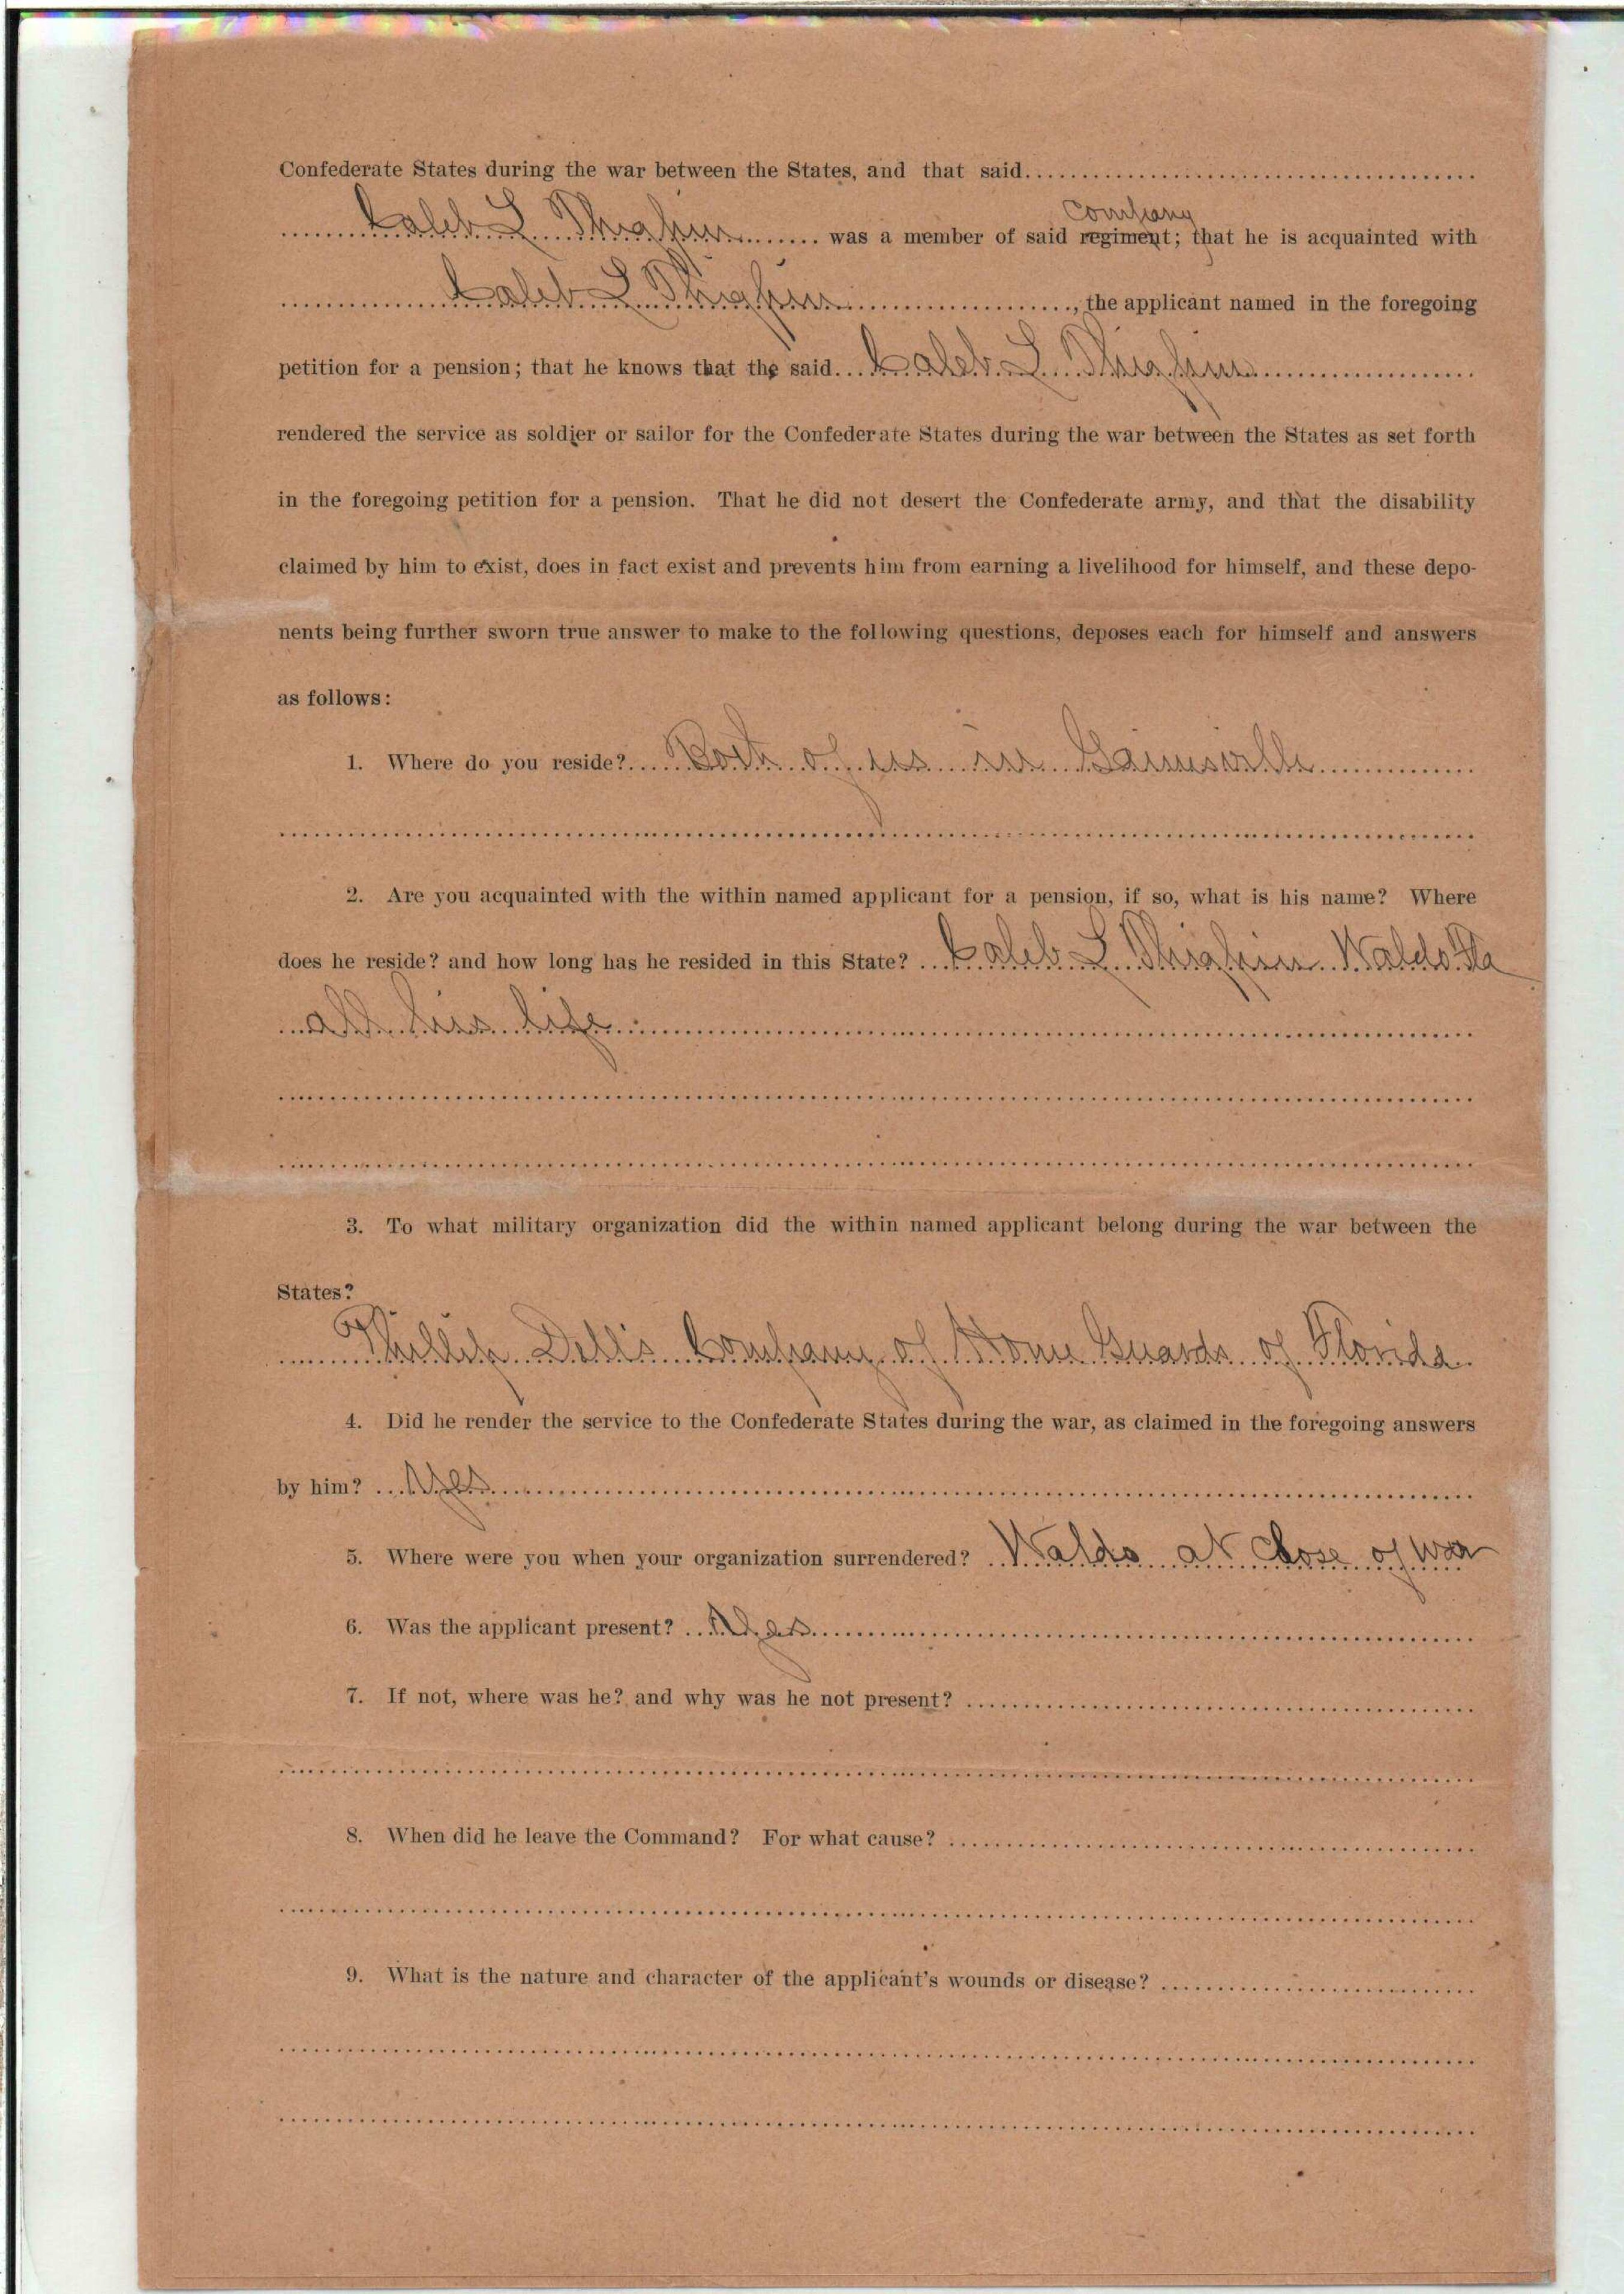 Confederate States during the war between the States, and that said
Company
Caleb L. Thigpin was a member of said regiment; that he is acquainted with
Caleb L Thigpin, the applicant named in the foregoing
petition for a pension; that he knows that the said Caleb L. Thigpin
rendered the service as soldier or sailor for the Confederate States during the war between the States as set forth
in the foregoing petition for a pension. That he did not desert the Confederate army, and that the disability
claimed by him to exist, does in fact exist and prevents him from earning a livelihood for himself, and these depo-
nents being further sworn true answer to make to the following questions, deposes each for himself and answers
as follows:
1. Where do you reside? Both of us in Gainesville
2. Are you acquainted with the within named applicant for a pension, if so, what is his name? Where
does he reside? and how long has he resided in this State? Caleb L. Thigpin Waldo Fla
all his life
3. To what military organization did the within named applicant belong during the war between the
States?
Phillip Dell's Company of Home Guards of Florida
4. Did he render the service to the Confederate States during the war, as claimed in the foregoing answers
by him? Yes
5. Where were you when your organization surrendered? Waldo at Close of War
6. Was the applicant present? Yes
7. If not, where was he? and why was he not present?
8. When did he leave the Command? For what cause?
9. What is the nature and character of the applicant's wounds or disease?